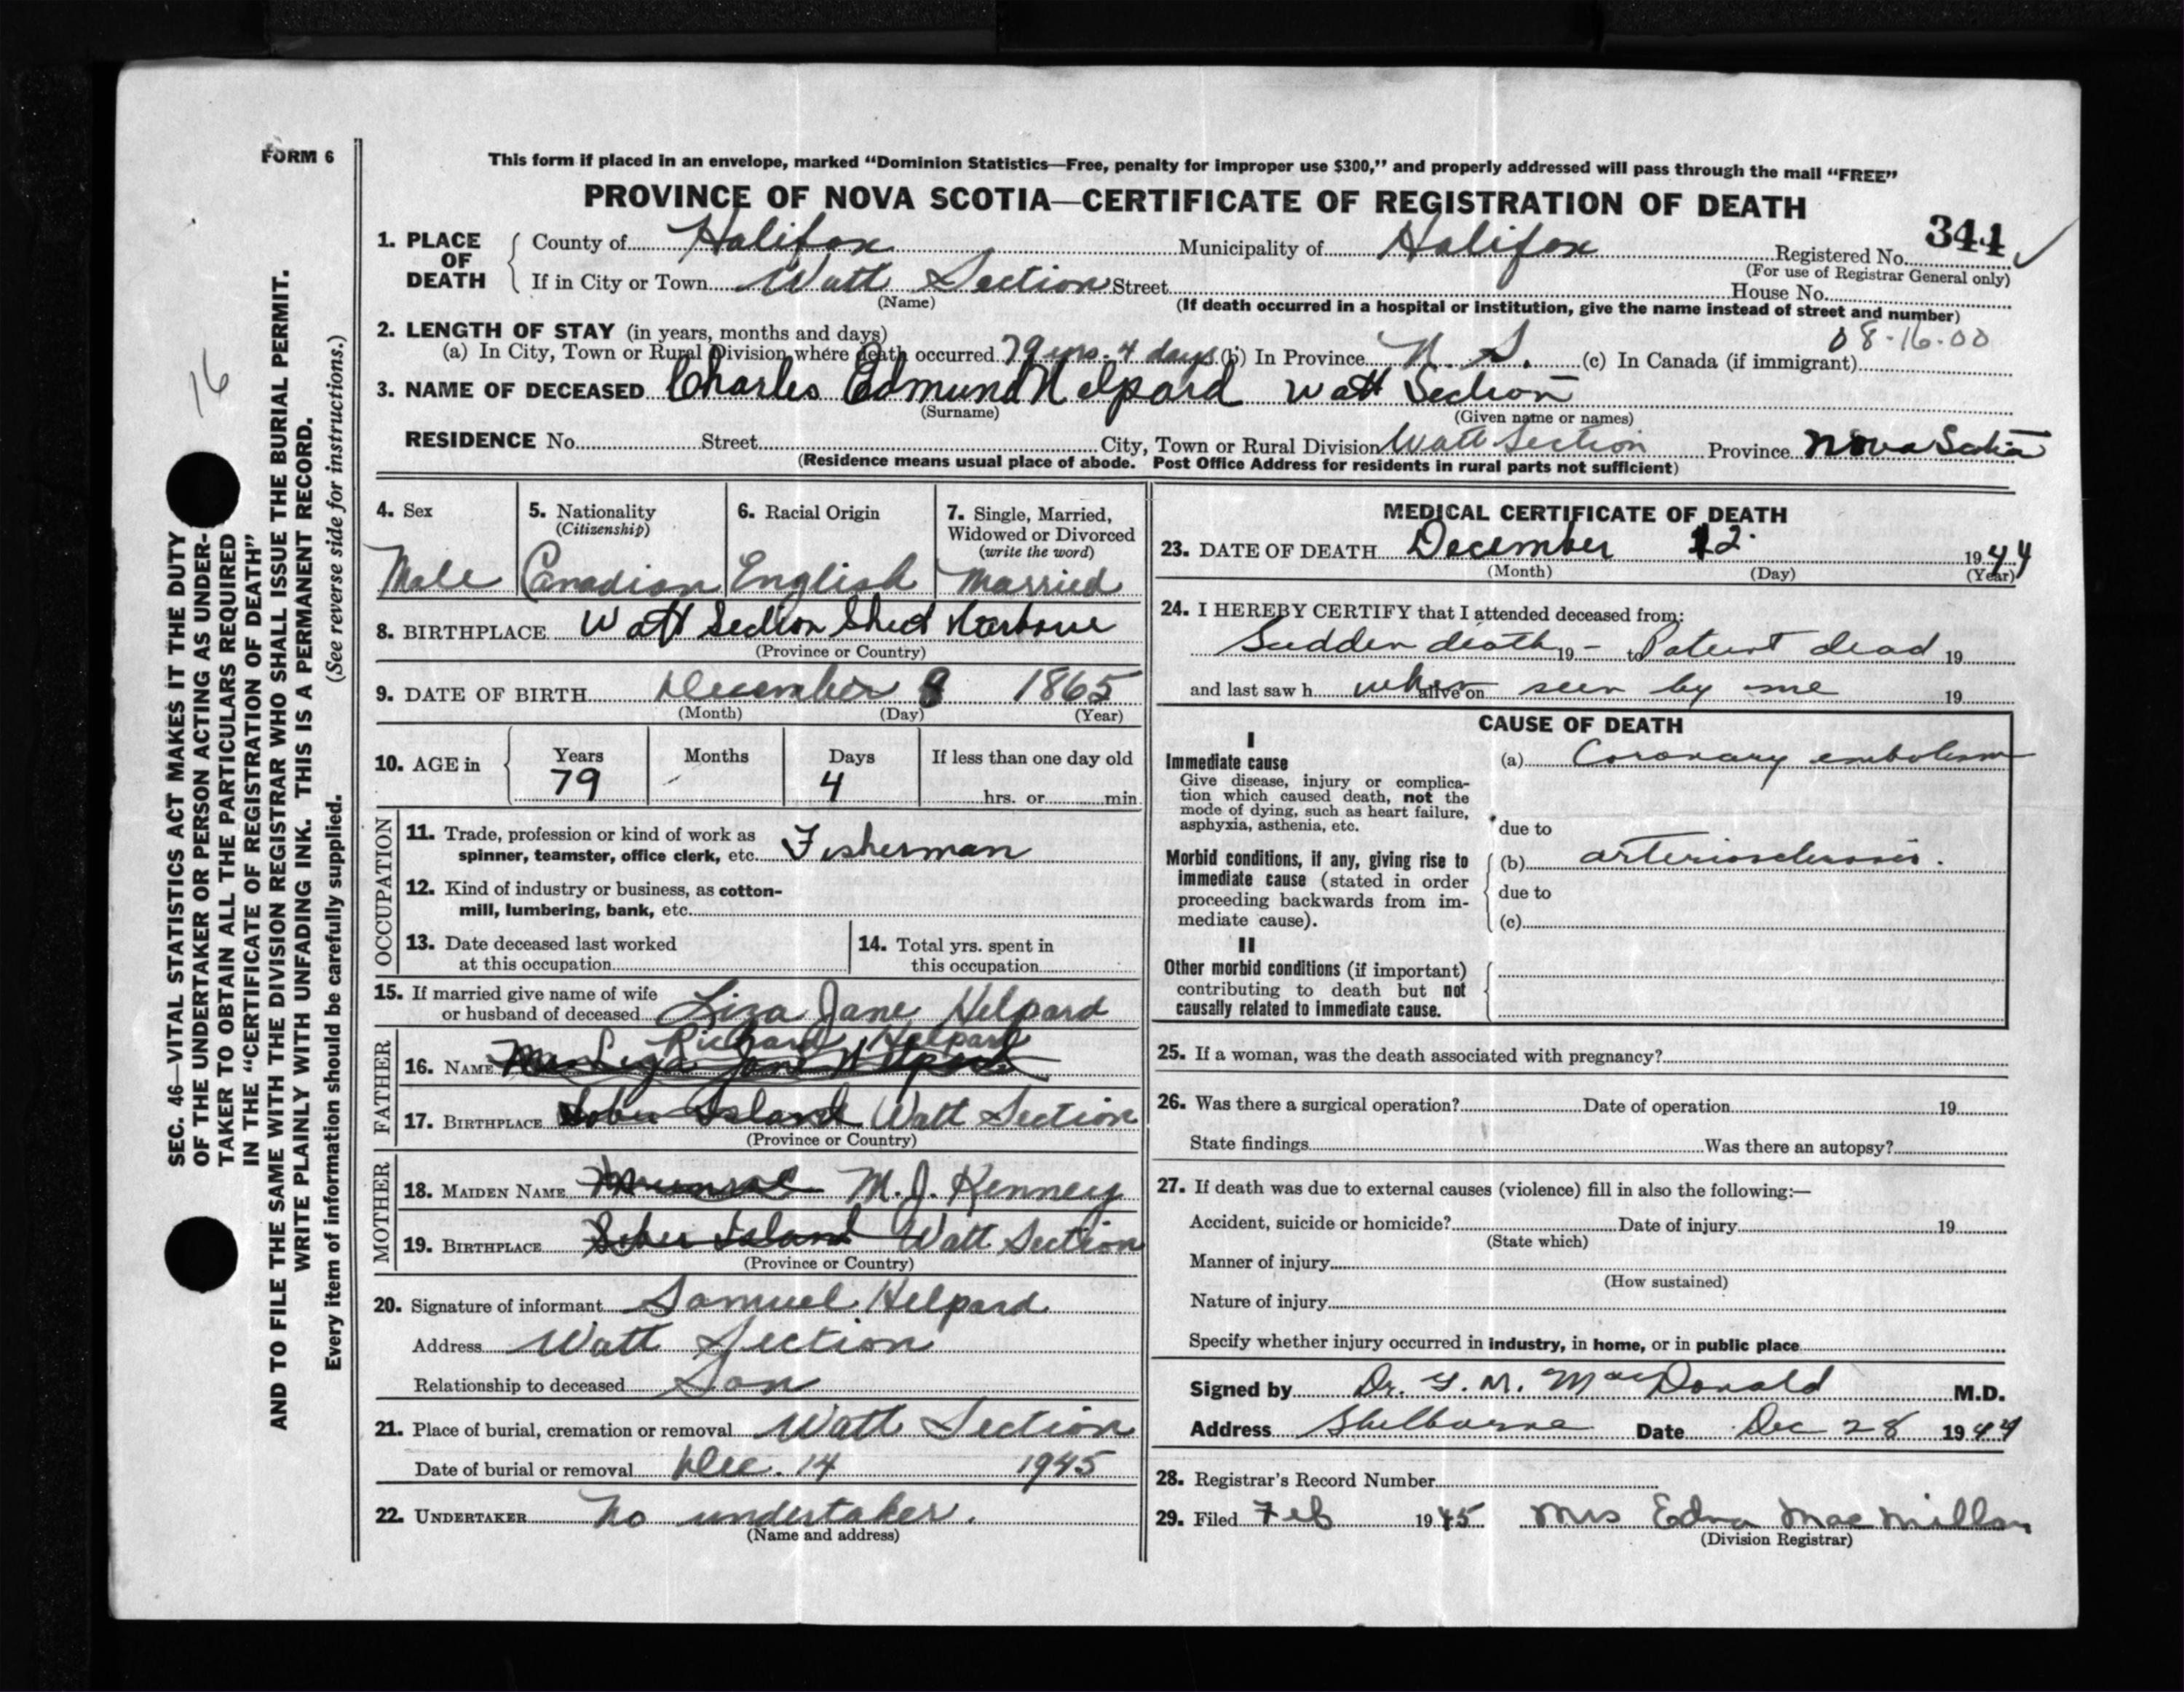 FORM 6
This form if placed in an envelope, marked “Dominion Statistics—Free, penalty for improper use $300,” and properly addressed will pass through the mail “FREE”
PROVINCE OF NOVA SCOTIA—CERTIFICATE OF REGISTRATION OF DEATH
344
1. PLACE OF DEATH County of Halifax Municipality of Halifax Registered No.
(For use of Registrar General only)
If in City or Town Watt Section Street House No.
(Name) (If death occurred in a hospital or institution, give the name instead of street and number)
2. LENGTH OF STAY (in years, months and days) 08-16-00
(a) In City, Town or Rural Division where death occurred 79 yrs. 4 days (b) In Province N. S. (c) In Canada (if immigrant)
3. NAME OF DECEASED Charles Edmund Helpard Watt Section
(Surname) (Given name or names)
RESIDENCE No. Street City, Town or Rural Division Watt Section Province Nova Scotia
(Residence means usual place of abode. Post Office Address for residents in rural parts not sufficient)
4. Sex Male
5. Nationality (Citizenship) Canadian
6. Racial Origin English
7. Single, Married, Widowed or Divorced (write the word) Married
8. BIRTHPLACE Watt Section Sheet Harbour
(Province or Country)
9. DATE OF BIRTH December 8 1865
(Month) (Day) (Year)
10. AGE in Years Months Days If less than one day old
79 4 hrs. or min.
OCCUPATION
11. Trade, profession or kind of work as spinner, teamster, office clerk, etc. Fisherman
12. Kind of industry or business, as cotton-mill, lumbering, bank, etc.
13. Date deceased last worked at this occupation
14. Total yrs. spent in this occupation
15. If married give name of wife or husband of deceased Liza Jane Helpard
FATHER
Richard Helpard
16. NAME Mrs Liza Jane Helpard
17. BIRTHPLACE Sober Island Watt Section
(Province or Country)
MOTHER
18. MAIDEN NAME M. J. Kenney
19. BIRTHPLACE Sober Island Watt Section
(Province or Country)
20. Signature of informant Samuel Helpard
Address Watt Section
Relationship to deceased Son
21. Place of burial, cremation or removal Watt Section
Date of burial or removal Dec. 14 1945
22. UNDERTAKER No undertaker.
(Name and address)
MEDICAL CERTIFICATE OF DEATH
23. DATE OF DEATH December 12 1944
(Month) (Day) (Year)
24. I HEREBY CERTIFY that I attended deceased from:
Sudden death 19 – to Patient dead 19
and last saw h when alive on seen by me 19
CAUSE OF DEATH
I
Immediate cause (a) Coronary embolism
Give disease, injury or complica-
tion which caused death, not the
mode of dying, such as heart failure,
asphyxia, asthenia, etc.
due to
Morbid conditions, if any, giving rise to (b) arteriosclerosis.
immediate cause (stated in order due to
proceeding backwards from im-
mediate cause). (c)
II
Other morbid conditions (if important)
contributing to death but not
causally related to immediate cause.
25. If a woman, was the death associated with pregnancy?
26. Was there a surgical operation? Date of operation 19
State findings Was there an autopsy?
27. If death was due to external causes (violence) fill in also the following:—
Accident, suicide or homicide? Date of injury 19
(State which)
Manner of injury
(How sustained)
Nature of injury
Specify whether injury occurred in industry, in home, or in public place
Signed by Dr. G. M. MacDonald M.D.
Address Shelburne Date Dec 28 1944
28. Registrar’s Record Number
29. Filed Feb 1945 Mrs Edna MacMillan
(Division Registrar)
16
SEC. 46—VITAL STATISTICS ACT MAKES IT THE DUTY
OF THE UNDERTAKER OR PERSON ACTING AS UNDER-
TAKER TO OBTAIN ALL THE PARTICULARS REQUIRED
IN THE “CERTIFICATE OF REGISTRATION OF DEATH”
AND TO FILE THE SAME WITH THE DIVISION REGISTRAR WHO SHALL ISSUE THE BURIAL PERMIT.
WRITE PLAINLY WITH UNFADING INK. THIS IS A PERMANENT RECORD.
Every item of information should be carefully supplied. (See reverse side for instructions.)